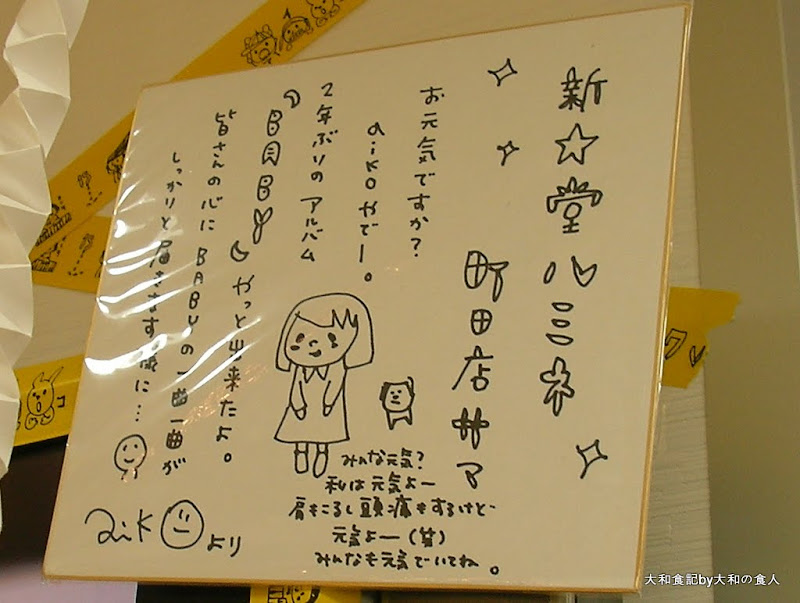 新☆堂 八三ネ
町田店サマ
お元気ですか?
aikoやでー。
2年ぶりのアルバム
BABY
やっと出来たよ。
皆さんの心にBABYの一曲一曲が
しっかりと届きます様に…
みんな元気?
私は元気よー
肩もこるし頭痛もするけど
元気よー(笑)
みんなも元気でいてね。
aikoより
大和食記by大和の食人